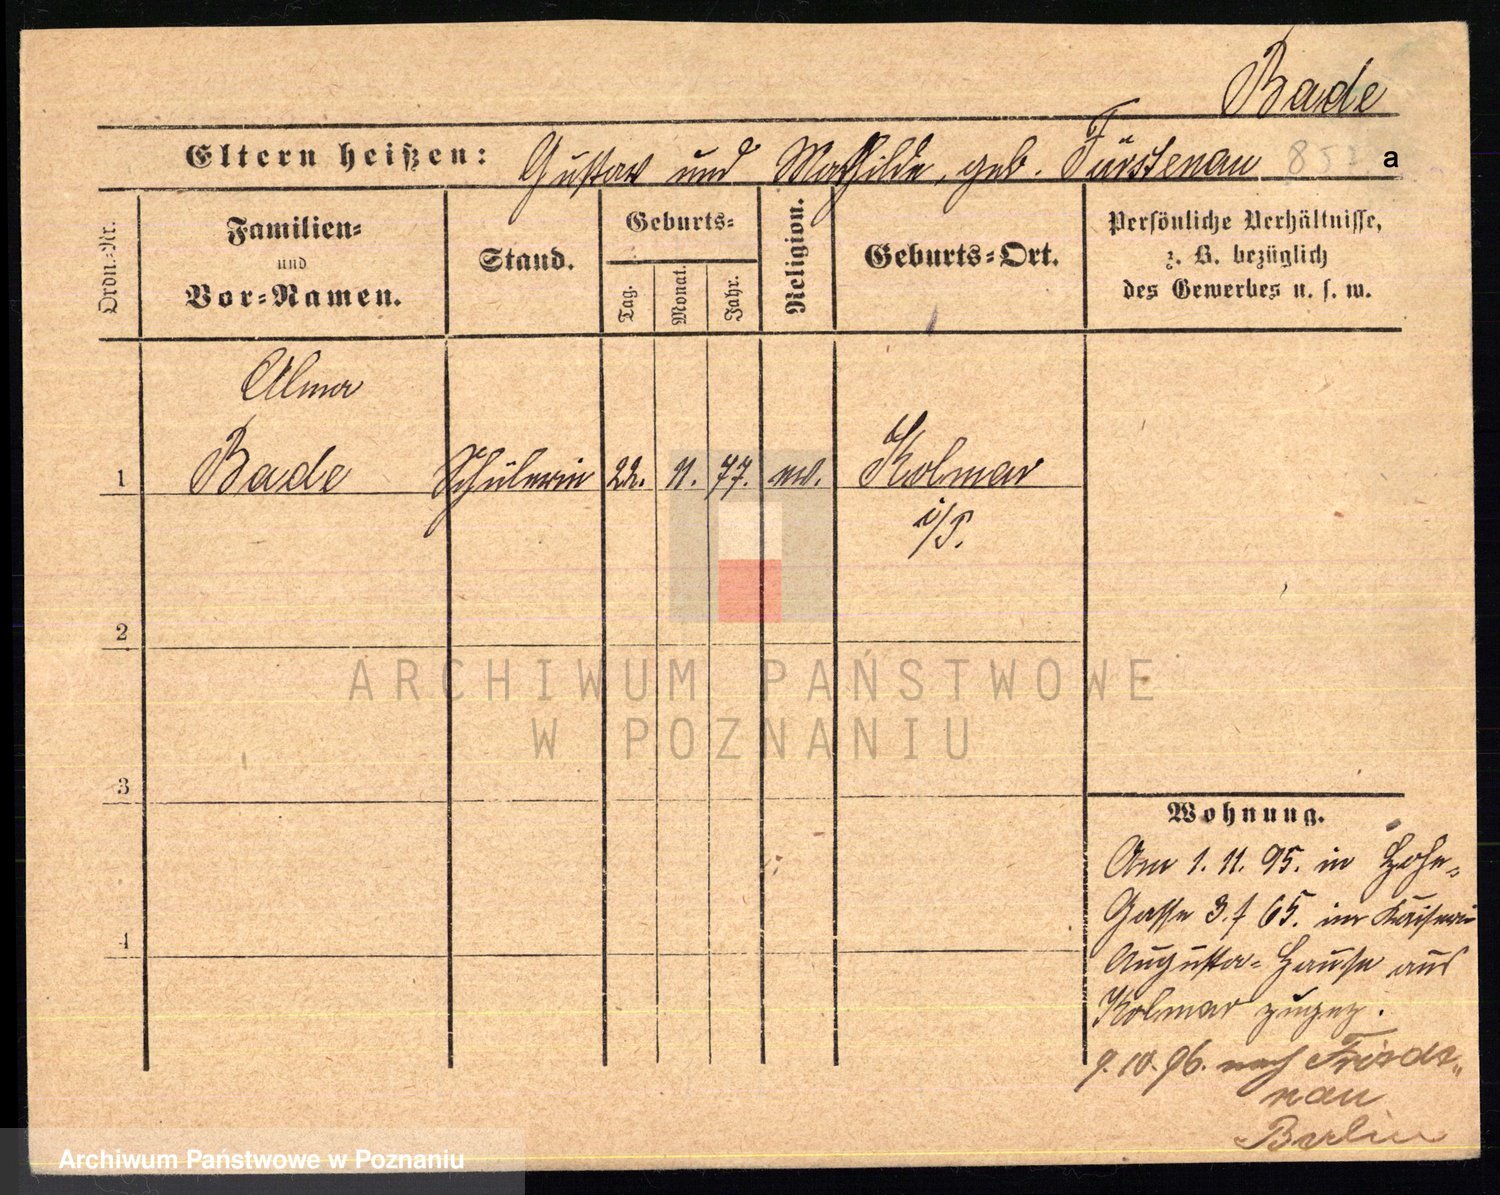 Bade
Eltern heißen: Gustav und Mathilde, geb. Fürstenau 852 a
Ordn.-Nr.
Familien-
und
Vor-Namen.
Stand.
Geburts-
Tag.
Monat.
Jahr.
Religion.
Geburts-Ort.
Persönliche Verhältnisse,
z. B. bezüglich
des Gewerbes u. s. w.
Alma
1 Bade Schülerin 22. 11. 77. ev. Kolmar
i/P.
2
ARCHIWUM PAŃSTWOWE
W POZNANIU
3
Wohnung.
Am 1. 11. 95. in Hohe-
Gasse 3. f 65. im Kaiserin
4
Augusta-Hause aus
Kolmar zugez.
9. 10. 96. nach Friede-
nau
Berlin
Archiwum Państwowe w Poznaniu